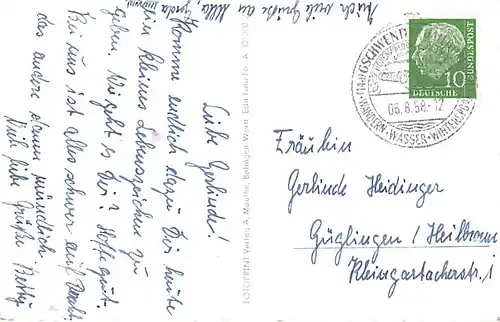 Auch viele Grüße an Alla, Gerda
Liebe Gerlinde!
Komme endlich dazu Dir heute
ein kleines Lebenszeichen zu
geben. Wie geht's Dir? Hoffe gut.
Bei uns ist alles schwer auf Draht.
das andere dann mündlich
Viele liebe Grüße Betty
FOTOPRINT Verlag A. Mauthe, Balingen-Württ. Echt Foto Nr. A
SCHWEND
WANDERN-WASSER-WINTERSPORT
06.8.58.-12
DEUTSCHE
BUNDESPOST
10
Fräulein
Gerlinde Heidinger
Güglingen / Heilbronn
Kleingartacherstr. 1